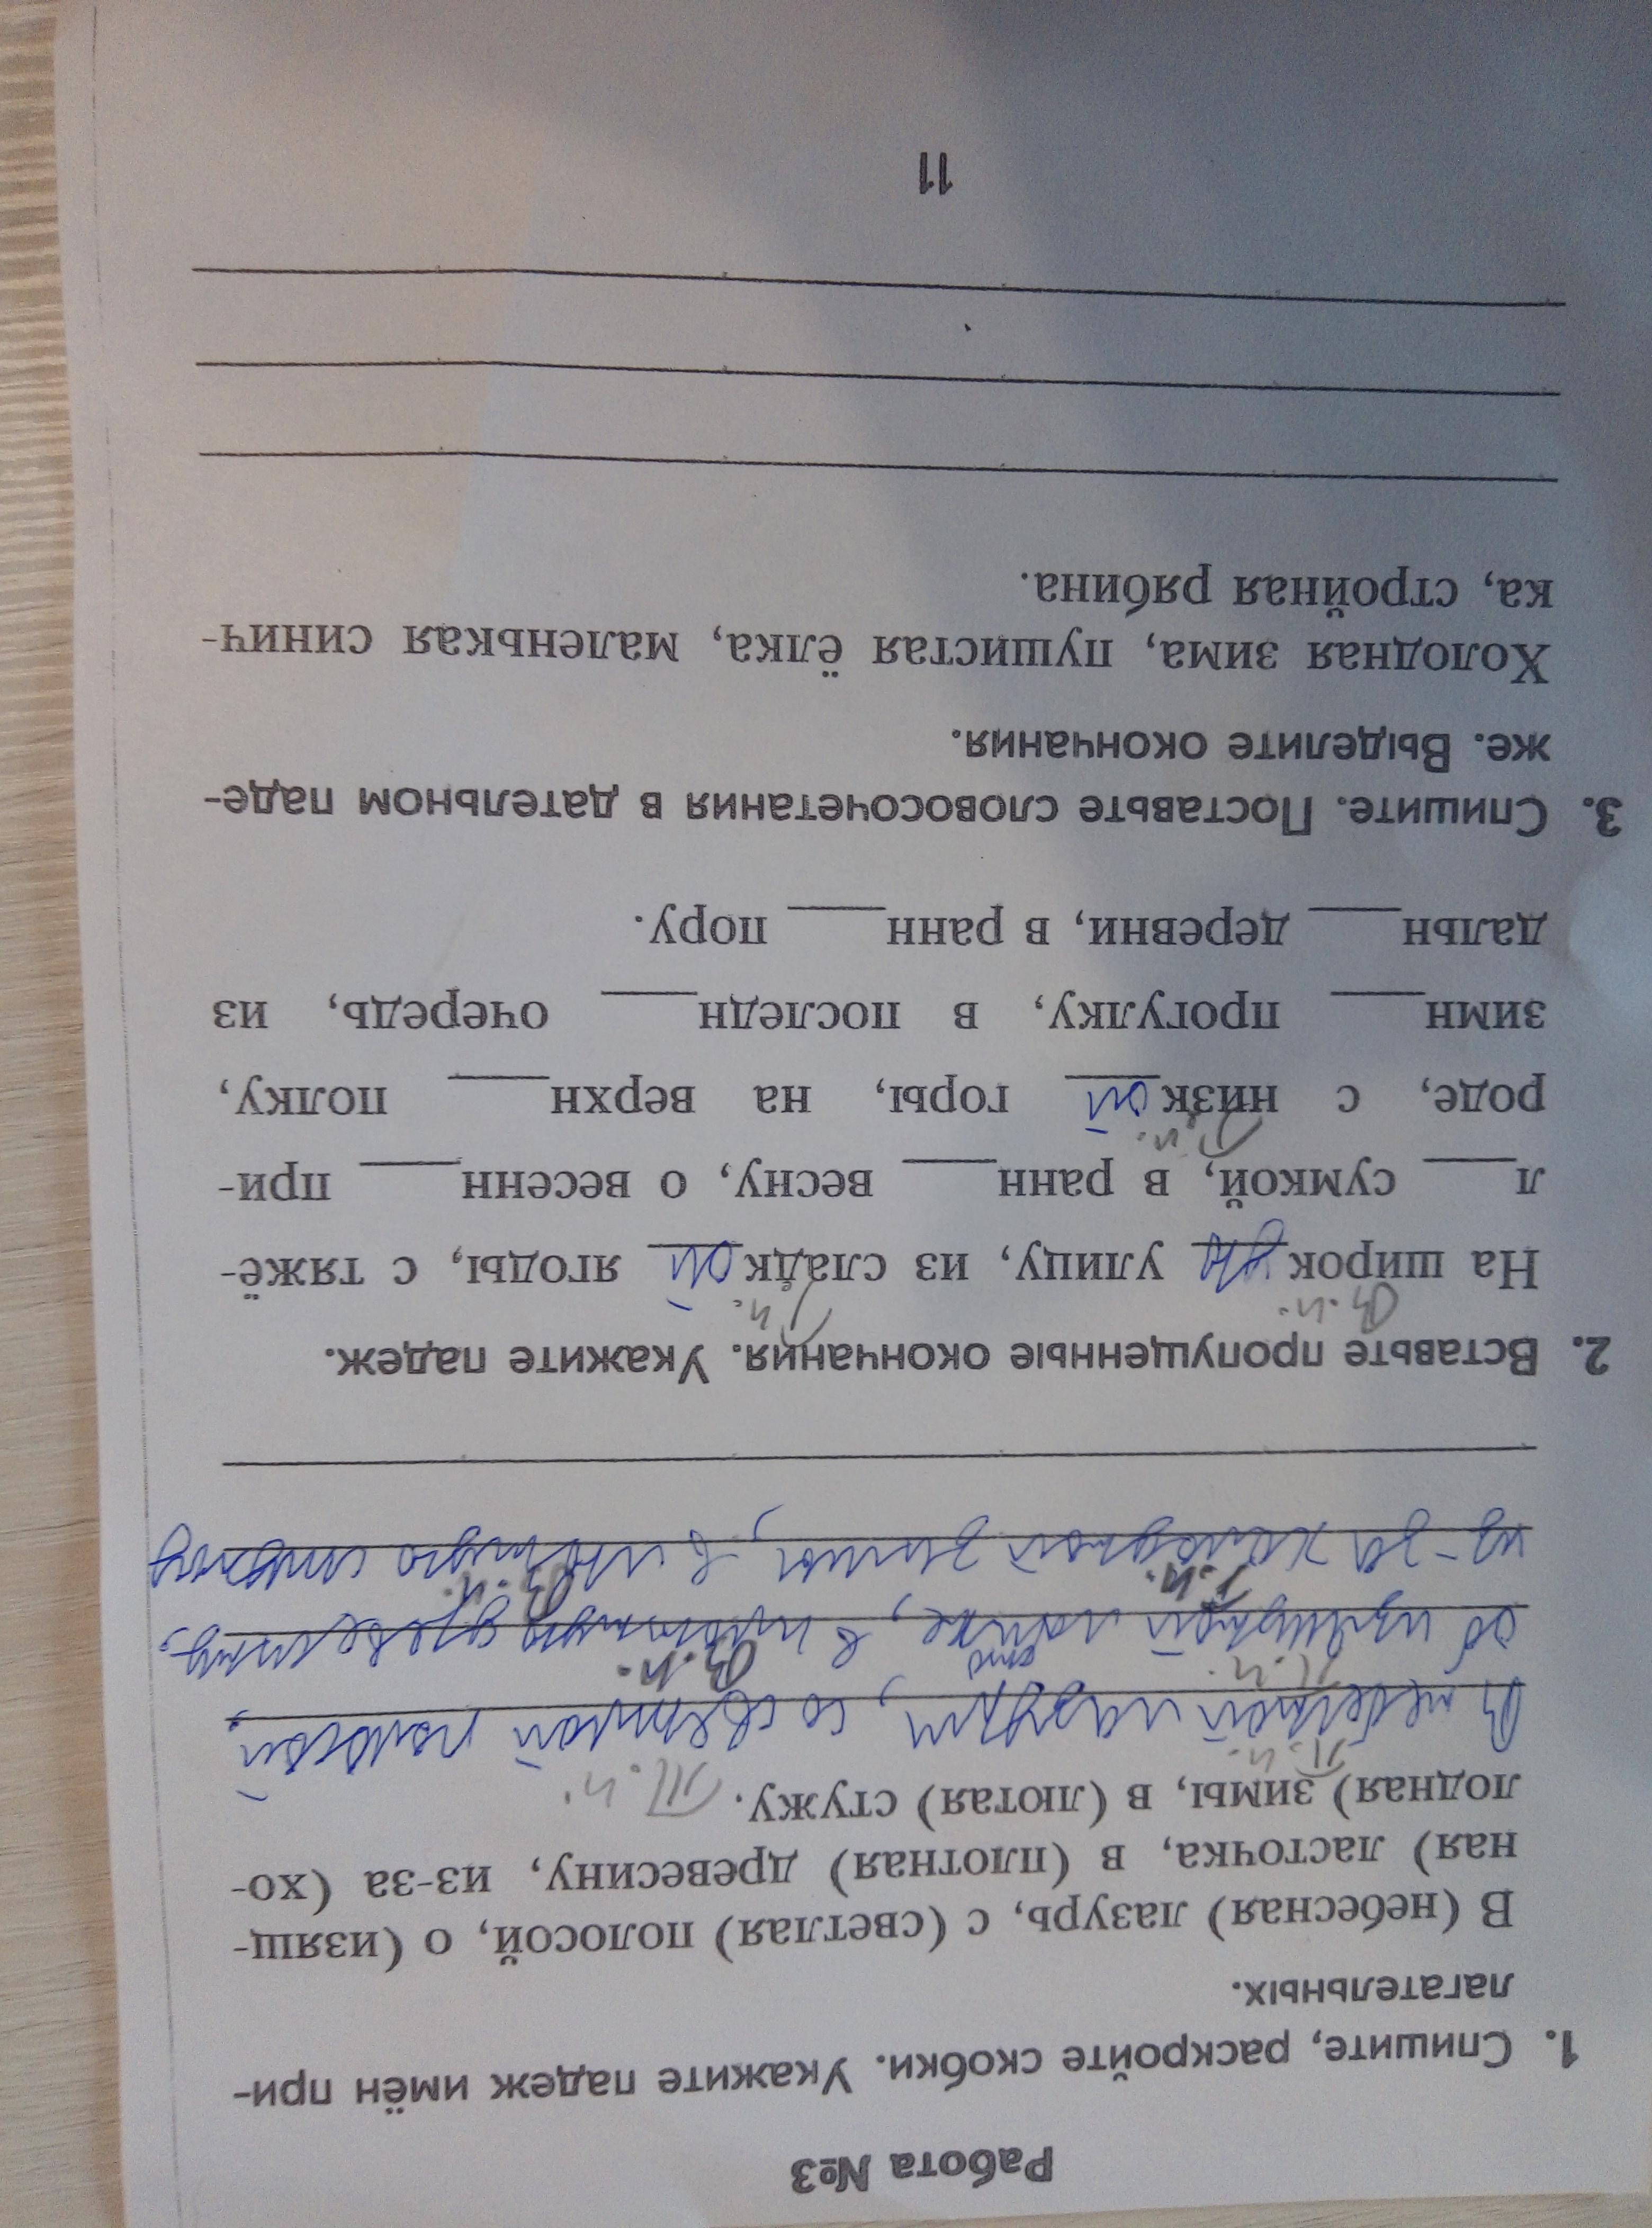 Работа №3
1. Спишите, раскройте скобки. Укажите падеж имён при-
лагательных.
В (небесная) лазурь, с (светлая) полосой, о (изящ-
ная) ласточка, в (плотная) древесину, из-за (хо-
лодная) зимы, в (лютая) стужу.
П.п.
В небесной со светлой полосой,
П.п. В.п.
об изящной в плотную древесину,
Р.п. В.п.
из-за холодной зимы, в лютую стужу
2. Вставьте пропущенные окончания. Укажите падеж.
В.п. Р.п.
На широк ую улицу, из сладк ой ягоды, с тяжё-
л___ сумкой, в ранн___ весну, о весенн___ при-
Р.п.
роде, с низк ой горы, на верхн___ полку,
зимн___ прогулку, в последн___ очередь, из
дальн___ деревни, в ранн___ пору.
3. Спишите. Поставьте словосочетания в дательном паде-
же. Выделите окончания.
Холодная зима, пушистая ёлка, маленькая синич-
ка, стройная рябина.
11